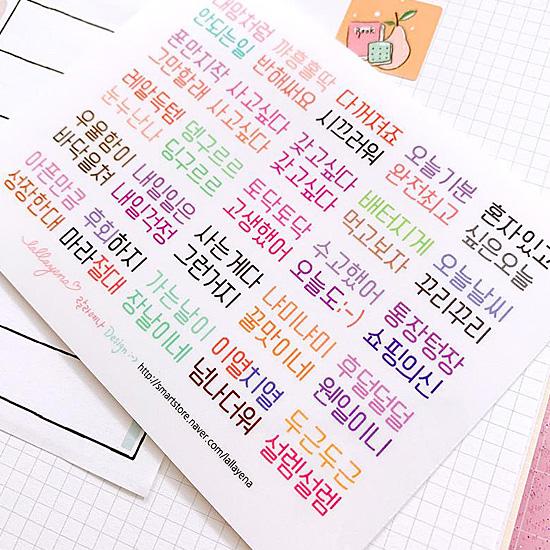 Book
내맘처럼
안되는일
까흥흘딱
반해써요
다꺼져죠
시끄러워
오늘기분
완전최고
혼자있고
싶은오늘
폰만지작
그만할래
사고싶다
사고싶다
갖고싶다
갖고싶다
배터지게
먹고보자
오늘날씨
꾸리꾸리
레알득템
눈누난나
뎅구르르
딩구르르
토닥토닥
고생했어
수고했어
오늘도:-)
통장텅장
쇼핑의신
우울함이
바닥을쳐
내일일은
내일걱정
사는게다
그런거지
냐미냐미
꿀맛이네
후덜덜덜
웬일이니
아픈만큼
성장한대
후회하지
마라절대
가는날이
장날이네
이열치열
넘나더워
두근두근
설렘설렘
lallayena
랄라예나 Design :-)
http://smartstore.naver.com/lallayena